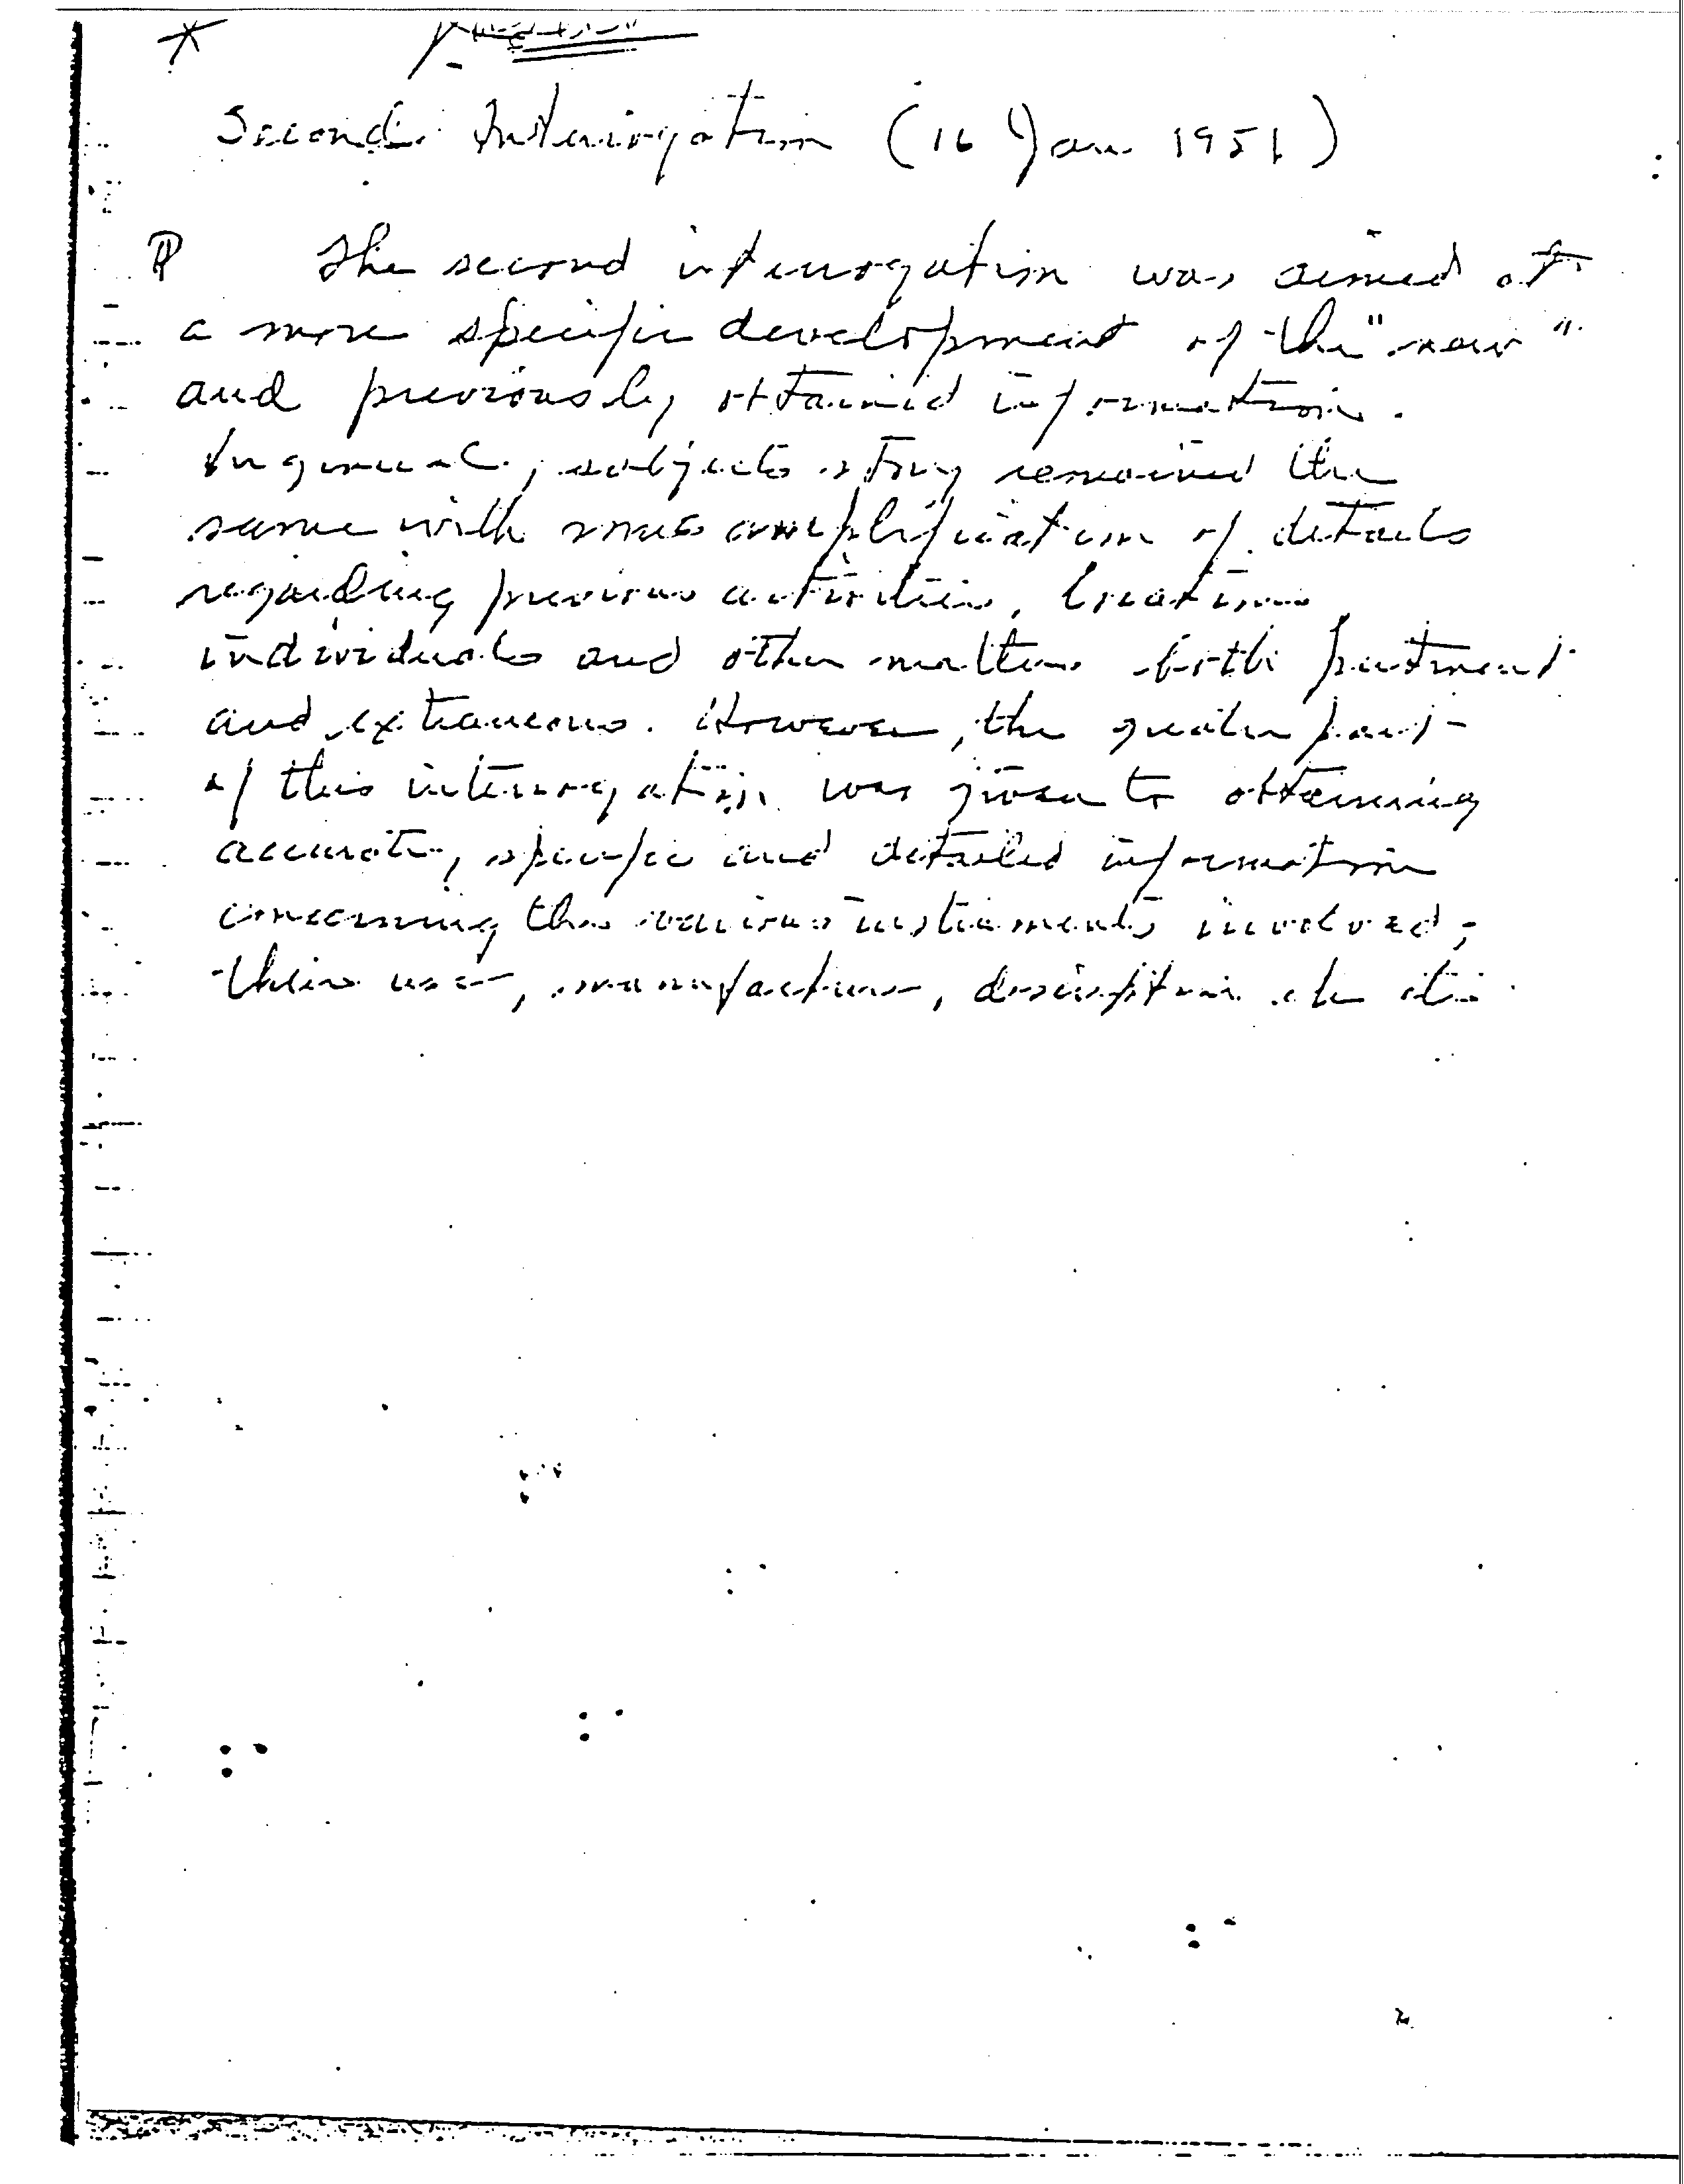 Second Interrogation (16 Jan 1951)
The second interrogation was aimed at
a more specific development of the "new"
and previously obtained information.
In general, subjects story remained the
same with some amplification of details
regarding previous activities, locations
individuals and other matters both pertinent
and extraneous. However, the greater part
of this interrogation was given to obtaining
accurate, specific and detailed information
concerning the various instruments involved,
their use, manufacture, description etc etc